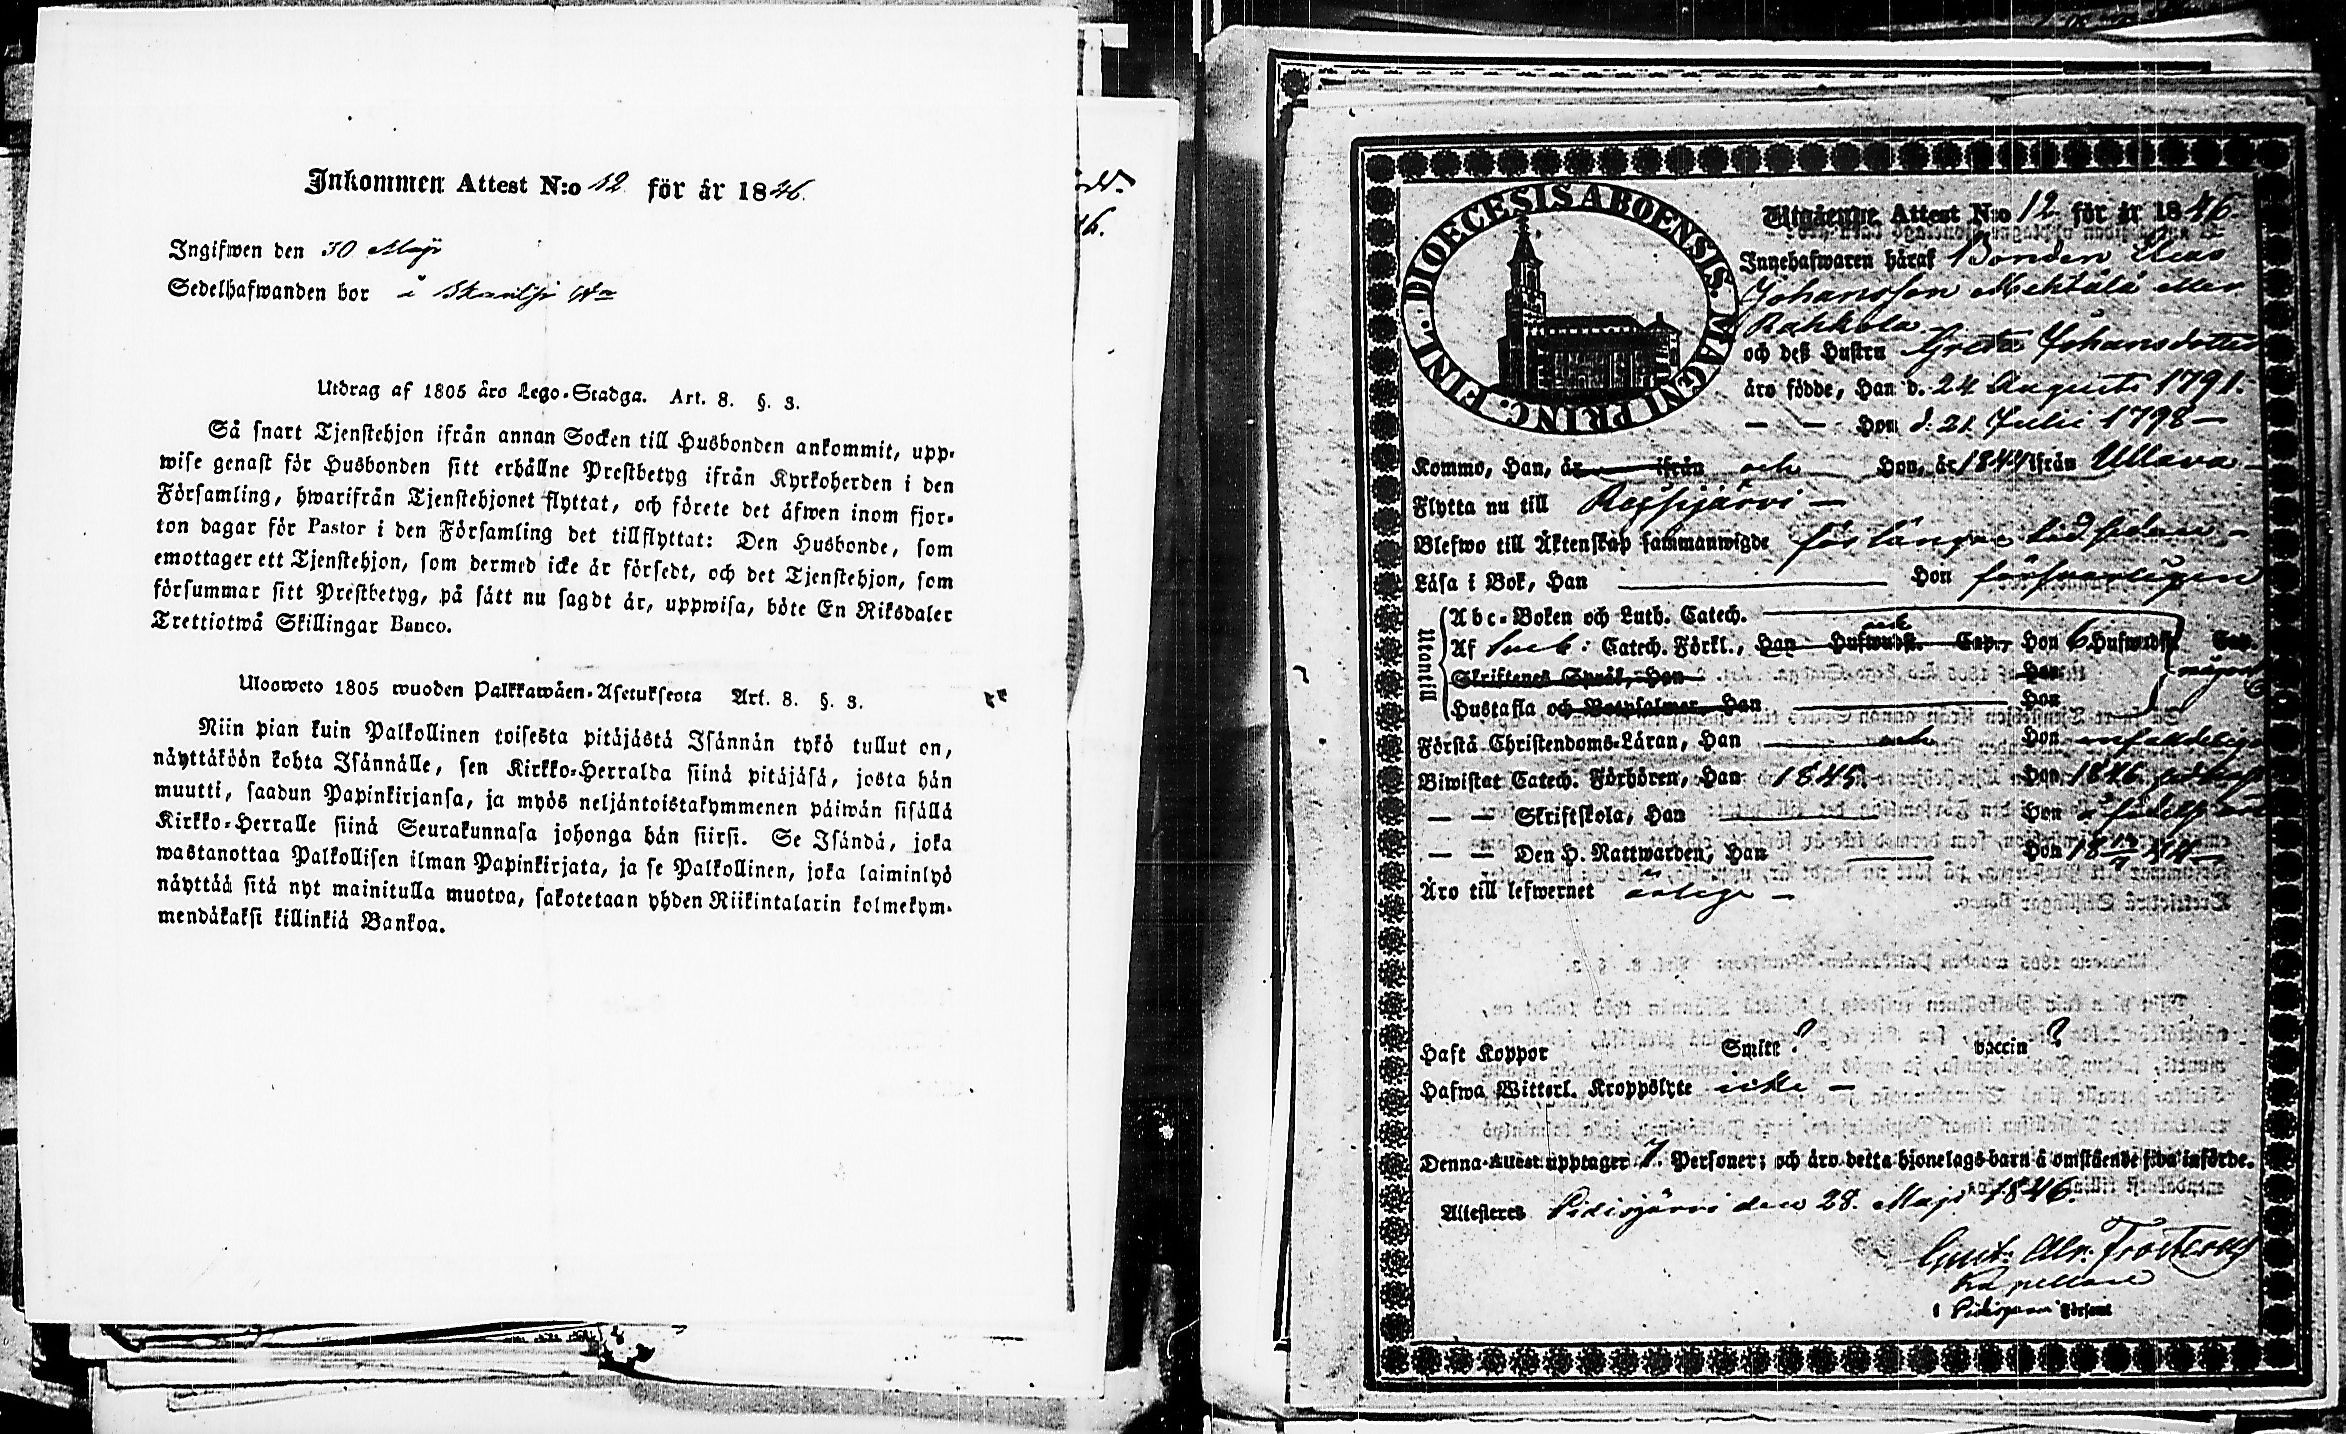 Inkommen Attest N:o 12 för år 1846.
Ingifwen den 30 Maji
Sedelhafwanden bor å
Utdrag af 1805 års Lego-Stadga. Art. 8. §. 3.
Så snart Tjenstehjon ifrån annan Socken till Husbonden ankommit, upp-
wise genast för Husbonden sitt erhållne Prestbetyg ifrån Kyrkoherden i den
Församling, hwarifrån Tjenstehjonet flyttat, och förete det äfwen inom fjor-
ton dagar för Pastor i den Församling det tillflyttat: Den Husbonde, som
emottager ett Tjenstehjon, som dermed icke är försedt, och det Tjenstehjon, som
försummar sitt Prestbetyg, på sätt nu sagdt är, uppwisa, böte En Riksdaler
Trettiotwå Skillingar Banco.
Ulosweto 1805 wuoden Palkkawäen-Asetuksesta Art. 8. §. 3.
Niin pian kuin Palkollinen toisesta pitäjästä Isännän tykö tullut on,
näyttäköön kohta Isännälle, sen Kirkko-Herralda siinä pitäjäsä, josta hän
muutti, saadun Papinkirjansa, ja myös neljäntoistakymmenen päiwän sisällä
Kirkko-Herralle siinä Seurakunnasa johonga hän siirsi. Se Isändä, joka
wastanottaa Palkollisen ilman Papinkirjata, ja se Palkollinen, joka laiminlyö
näyttää sitä nyt mainitulla muotoa, sakotetaan yhden Riikintalarin kolmekym-
mendäkaksi killinkiä Bankoa.
DIOECESIS ABOENSIS. MAGNI PRINC. FINL.
Utgående Attest N:o 12 för år 1846.
Innehafwaren häraf Bonden Elias
Johansson Mehtälä eller
Rahkola
och deß Hustru Greta Johansdotter
äro födde, Han d. 24 Augusti 1791.
— — Hon d. 21 Julii 1798 —
Kommo, Han, år ifrån och Hon, år 1844 ifrån Ullava
Flytta nu till Reisjärvi —
Blefwo till Äktenskap sammanwigde för längre tid sedan —
Läsa i Bok, Han Hon försvarligen
Utantill
Abc-Boken och Luth. Catech.
Af Sveb: Catech. Förkl., Han och Hufwudst. Cap., Hon 6 Hufwudst. Cap.
Skriftenes Språk, Han Hon något
Hustafla och Botpsalmer, Han Hon
Första Christendoms-Läran, Han och Hon enfaldeligen
Biwistat Catech. Förhören, Han 1845 Hon 1846
— — Skriftskola, Han Hon
— — Den H. Nattwarden, Han Hon 18
Äro till lefwernet ärlige —
Haft Koppor Smitt? vaccin?
Hafwa Witterl. Kroppslyte icke —
Denna Attest upptager 7. Personer; och äro detta hjonelags barn å omstående sida införde.
Attesteres Pidisjärvi den 28. Maji 1846.
Gust. Ad. Frosterus
Kapellan
i Pidisjärvi Församl